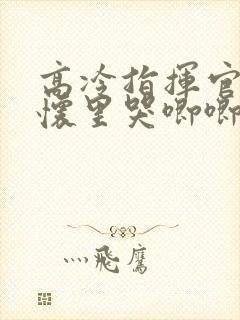 高冷指揮官
懷里哭唧唧
灬飛鷹